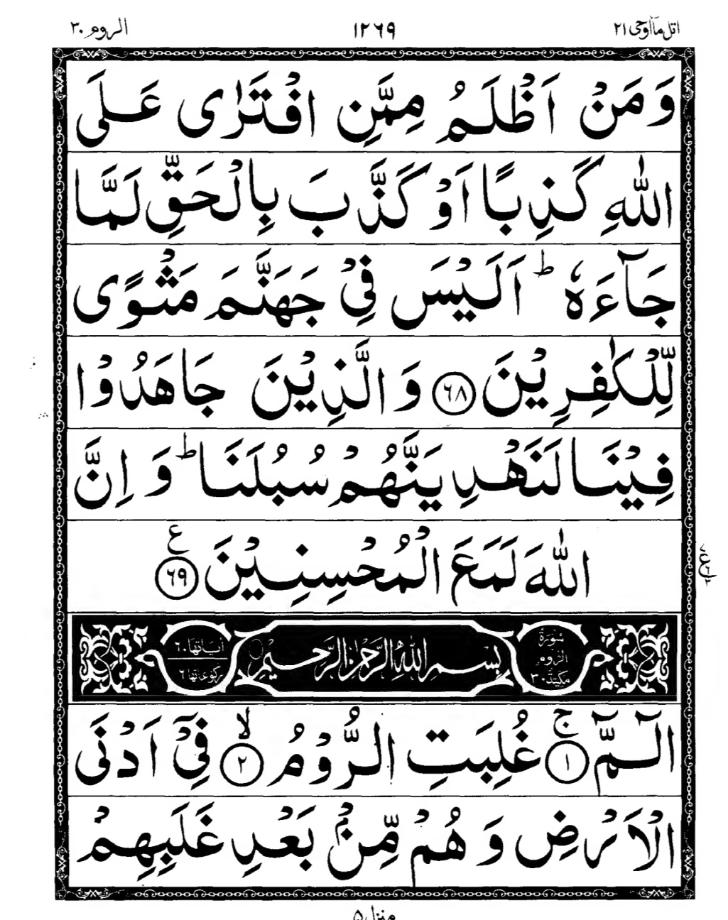 اتل مآاوحی ۲۱
۱۲۶۹
الروم ۳۰
وَمَنْ اَظْلَمُ مِمَّنِ افْتَرٰى عَلَى
اللّٰهِ كَذِبًا اَوْ كَذَّبَ بِالْحَقِّ لَمَّا
جَآءَهٗ ؕ اَلَيْسَ فِيْ جَهَنَّمَ مَثْوًى
لِّلْكٰفِرِيْنَ ﴿۶۸﴾ وَالَّذِيْنَ جَاهَدُوْا
فِيْنَا لَنَهْدِيَنَّهُمْ سُبُلَنَا ؕ وَ اِنَّ
اللّٰهَ لَمَعَ الْمُحْسِنِيْنَ ﴿۶۹﴾ ع
سُوْرَةُ الرُّوْمِ مَكِّيَّةٌ ۳۰
بِسْمِ اللّٰهِ الرَّحْمٰنِ الرَّحِيْمِ
اٰيَاتُهَا ۶۰
رُكُوْعَاتُهَا ۶
الٓمّٓ ﴿۱﴾ۚ غُلِبَتِ الرُّوْمُ ﴿۲﴾ۙ فِيْٓ اَدْنَى
الْاَرْضِ وَ هُمْ مِّنْۢ بَعْدِ غَلَبِهِمْ
منزل ۵